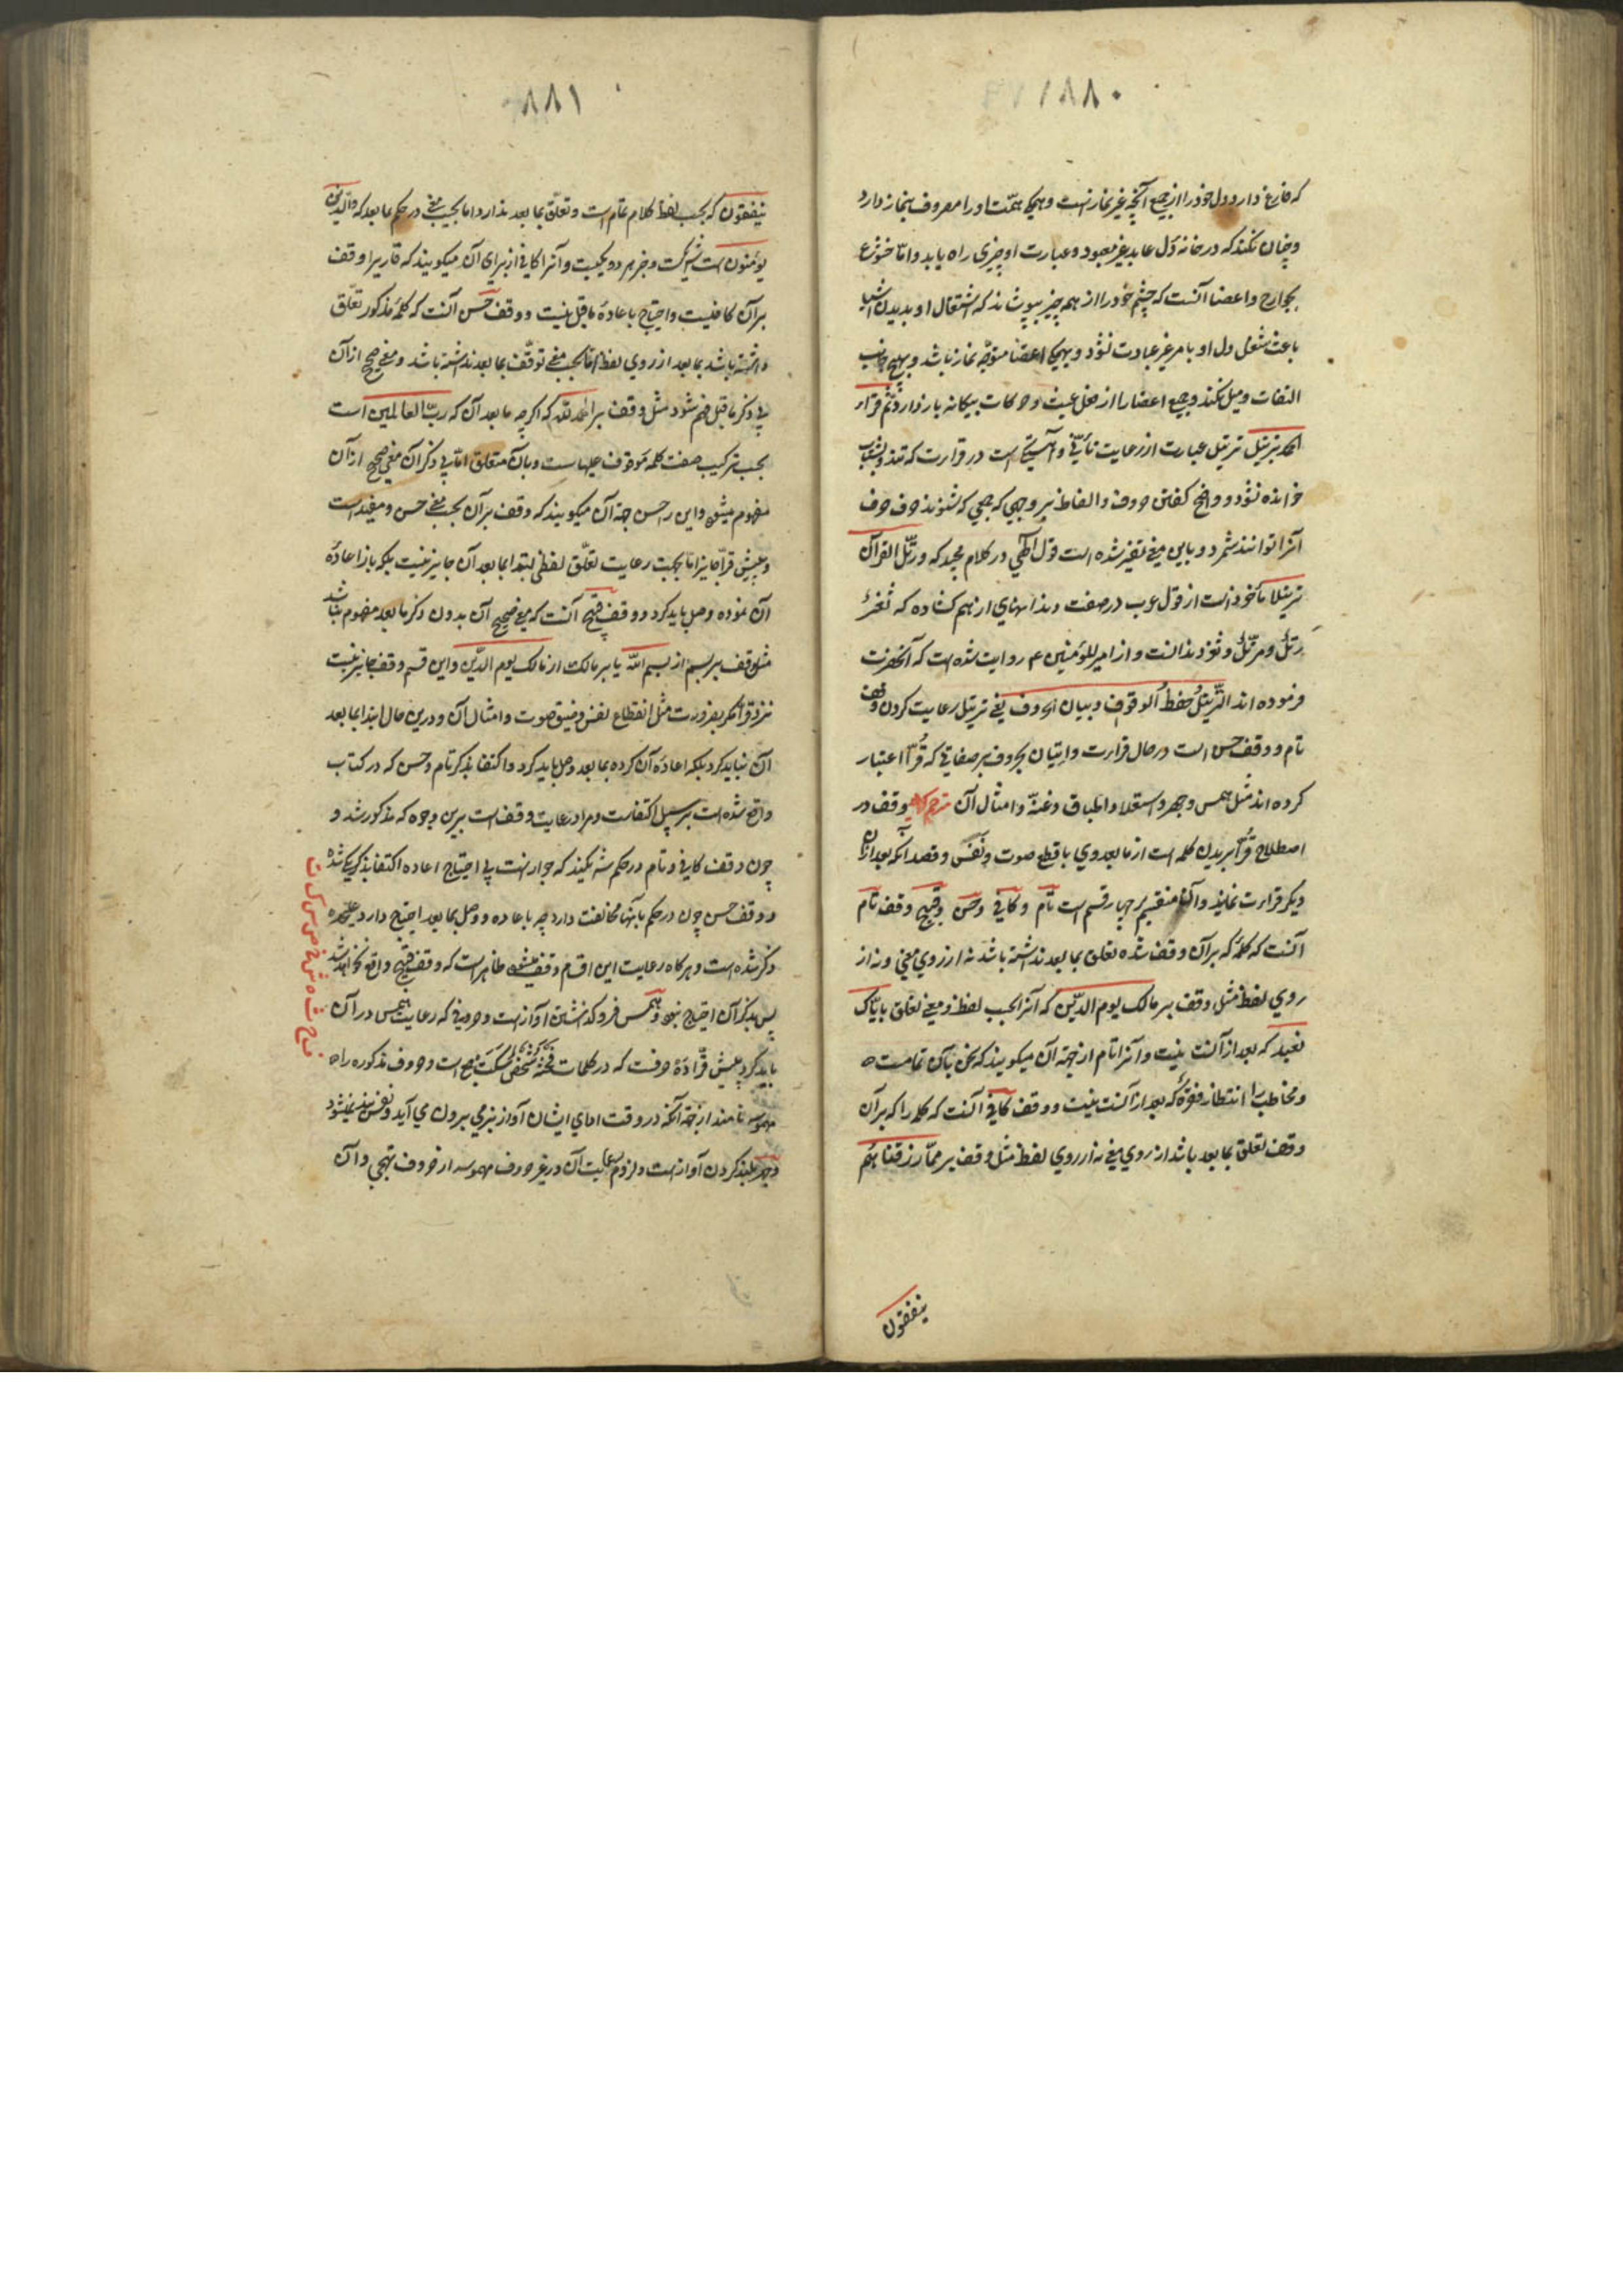 ۱۸۸۰
که فارغ دارد دل خود را از جمیع آنچه غیر نماز است و همکی همّت او را مصروف بنماز دارد
و چنان نکند که در خانه دل عابد غیر معبود و عبارت او چیزی راه یابد و امّا خشوع
بجوارح و اعضا آنست که چشم خود را از همه چیز بپوشاند که اشتغال او بدیدن اشیا
باعث شغل دل او بامر غیر عبادت نشود و بهمکی اعضا متوجّه نماز باشد و بهیچ جانب
التفات و میل نکند و جمیع اعضا را از فعل عبث و حرکات بیکانه باز دارد ثمّ قراء
الحمد بترتیل ترتیل عبارت از رعایت تأنّی و آهستکی است در قراءت که تند و بشتاب
خوانده نشود و واضح کفتن حروف و الفاظ بر وجهی که جمعی که شنوند حرف حرف
آنرا توانند شمرد و باین معنی تفسیر شده است قول الهی در کلام مجید که و رتّل القرآن
ترتیلا مأخوذ است از قول عرب در صفت دندانهای از هم کشاده که ثغرٌ
رتلٌ و مرتّلٌ و ثغر دندانست و از امیر المؤمنین ع روایت شده است که آنحضرت
فرموده اند التّرتیلُ حفظ الوقوف و بیان الحروف یعنی ترتیل رعایت کردن وقف
تام و وقف حسن است در حال قراءت و اتیان بحروف بر صفاتی که قرّا اعتبار
کرده اند مثل همس و جهر و استعلا و اطباق و غنّه و امثال آن مترجم کوید وقف در
اصطلاح قرّا بریدن کلمه است از ما بعد وی با قطع صوت و نَفَس و قصد آنکه بعد از آن
دیکر قراءت نماید و آن منقسم بر چهار قسم است تام و کافی و حسن و قبیح وقف تام
آنست که کلمهٔ که بر آن وقف شده تعلق بما بعد نداشته باشد نه از روی معنی و نه از
روی لفظ مثل وقف بر مالک یوم الدّین که آنرا بحسب لفظ و معنی تعلق بایّاک
نعبد که بعد از آنست نیست و آنرا تام از جهة آن میکویند که سخن بآن تمامست
و مخاطب را انتظار فقرهٔ که بعد از آنست نیست و وقف کافی آنست که کلمه را که بر آن
وقف تعلق بما بعد باشد از روی معنی نه از روی لفظ مثل وقف بر ممّا رزقناهُم
ینفقون
۸۸۱
ینفقون که بحسب لفظ کلام تمام است و تعلّق بما بعد ندارد امّا بحسب معنی در حکم ما بعد که والّذین
یؤمنون است شریکست و خبر هر دو یکیست و آنرا کافی از برای آن میکویند که قاری را وقف
بر آن کافیست و احتیاج باعادهٔ ما قبل نیست و وقف حسن آنست که کلمهٔ مذکور تعلّق
داشته باشد بما بعد از روی لفظ امّا بحسب معنی توقّف بما بعد نداشته باشد و معنی صحیح از آن
بی ذکر ما قبل فهم شود مثل وقف بر الحمد للّه که اکر چه ما بعد آن که ربّ العالمین است
بحسب ترکیب صفت کلمه موقوف علیهاست و بآن متعلق امّا بی ذکر آن معنی صحیح از آن
مفهوم میشود و این را حسن جهة آن میکویند که وقف بر آن بحسب معنی حسن و مفید است
و پیش قرّا جایز امّا بجهت رعایت تعلّق لفظی ابتدا بما بعد آن جایز نیست بلکه باز اعادهٔ
آن نموده وصل باید کرد و وقف قبیح آنست که معنی صحیح آن بدون ذکر ما بعد مفهوم نباشد
مثل وقف بر بسم از بسم اللّه یا بر مالک از مالک یوم الدّین و این قسم وقف جایز نیست
نزد قرّا مکر بضرورت مثل انقطاع نفس و ضیق صوت و امثال آن و درین حال ابتدا بما بعد
آن نباید کرد بلکه اعادهٔ آن کرده بما بعد وصل باید کرد و اکتفا بذکر تام و حسن که در کتاب
واقع شده است بر سبیل اکتفاست و مراد رعایت وقف است برین وجوه که مذکور شد و
چون وقف کافی و تام در حکم شریکند که جواز است بی احتیاج اعاده اکتفا بذکر یکی شده
و وقف حسن چون در حکم با آنها مخالفت دارد چه باعاده و وصل بما بعد احتیاج دارد علیحده
ذکر شده است و هر کاه رعایت این اقسام وقف میشود ظاهر است که وقف قبیح واقع نخواهد شد
پس بذکر آن احتیاج نبود و همس فرو کذاشتن آواز است و حروفی که رعایت همس در آن
باید کرد پیش قرّا دَه حرفست که در کلمات فحثّه شخص سکت جمع است و حروف مذکوره را
مهموسه نامند از جهة آنکه در وقت ادای ایشان آواز بنرمی بیرون می آید و نفس بند نمیشود
و جهر بلند کردن آواز است و لزوم رعایت آن در غیر حروف مهموسه از حروف تهجّی و آن
ف ح ث ه ش خ ص س ک ت